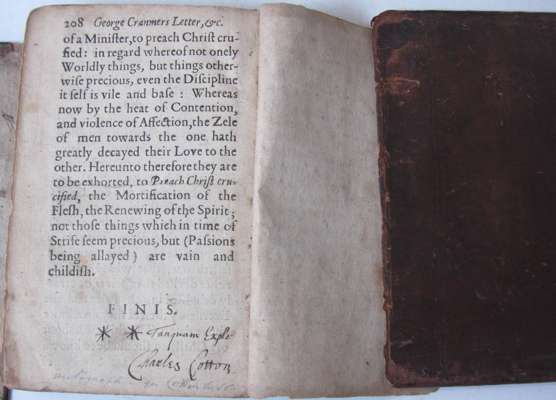 208 George Cranmers Letter, &c.
of a Minister, to preach Christ cru-
cified: in regard whereof not onely
Worldly things, but things other-
wise precious, even the Discipline
it self is vile and base: Whereas
now by the heat of Contention,
and violence of Affection, the Zele
of men towards the one hath
greatly decayed their Love to the
other. Hereunto therefore they are
to be exhorted, to Preach Christ cru-
cified, the Mortification of the
Flesh, the Renewing of the Spirit;
not those things which in time of
Strife seem precious, but (Passions
being allayed) are vain and
childish.
FINIS.
Tanquam Explo
Charles Cotton